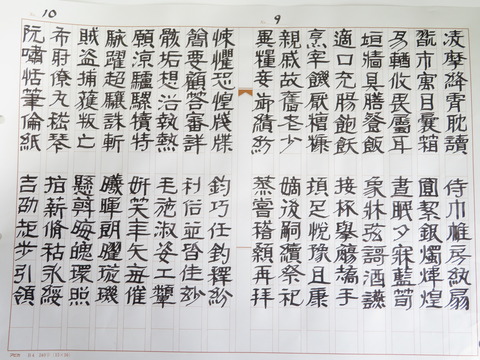 9
凌摩絳霄耽讀
翫市寓目囊箱
易輶攸畏屬耳
垣牆具膳飡飯
適口充腸飽飫
烹宰飢厭糟糠
親戚故舊老少
異糧妾御績紡
侍巾帷房紈扇
圓絜銀燭煒煌
晝眠夕寐藍筍
象牀弦哥酒讌
接杯舉觴矯手
頓足悅豫且康
嫡後嗣續祭祀
蒸嘗稽顙再拜
10
悚懼恐惶牋牒
簡要顧答審詳
骸垢想浴執熱
願涼驢騾犢特
駭躍超驤誅斬
賊盜捕獲叛亡
布射僚丸嵇琴
阮嘯恬筆倫紙
鈞巧任釣釋紛
利俗並皆佳妙
毛施淑姿工顰
妍笑年矢每催
曦暉朗曜璇璣
懸斡晦魄環照
指薪修祜永綏
吉劭矩步引領